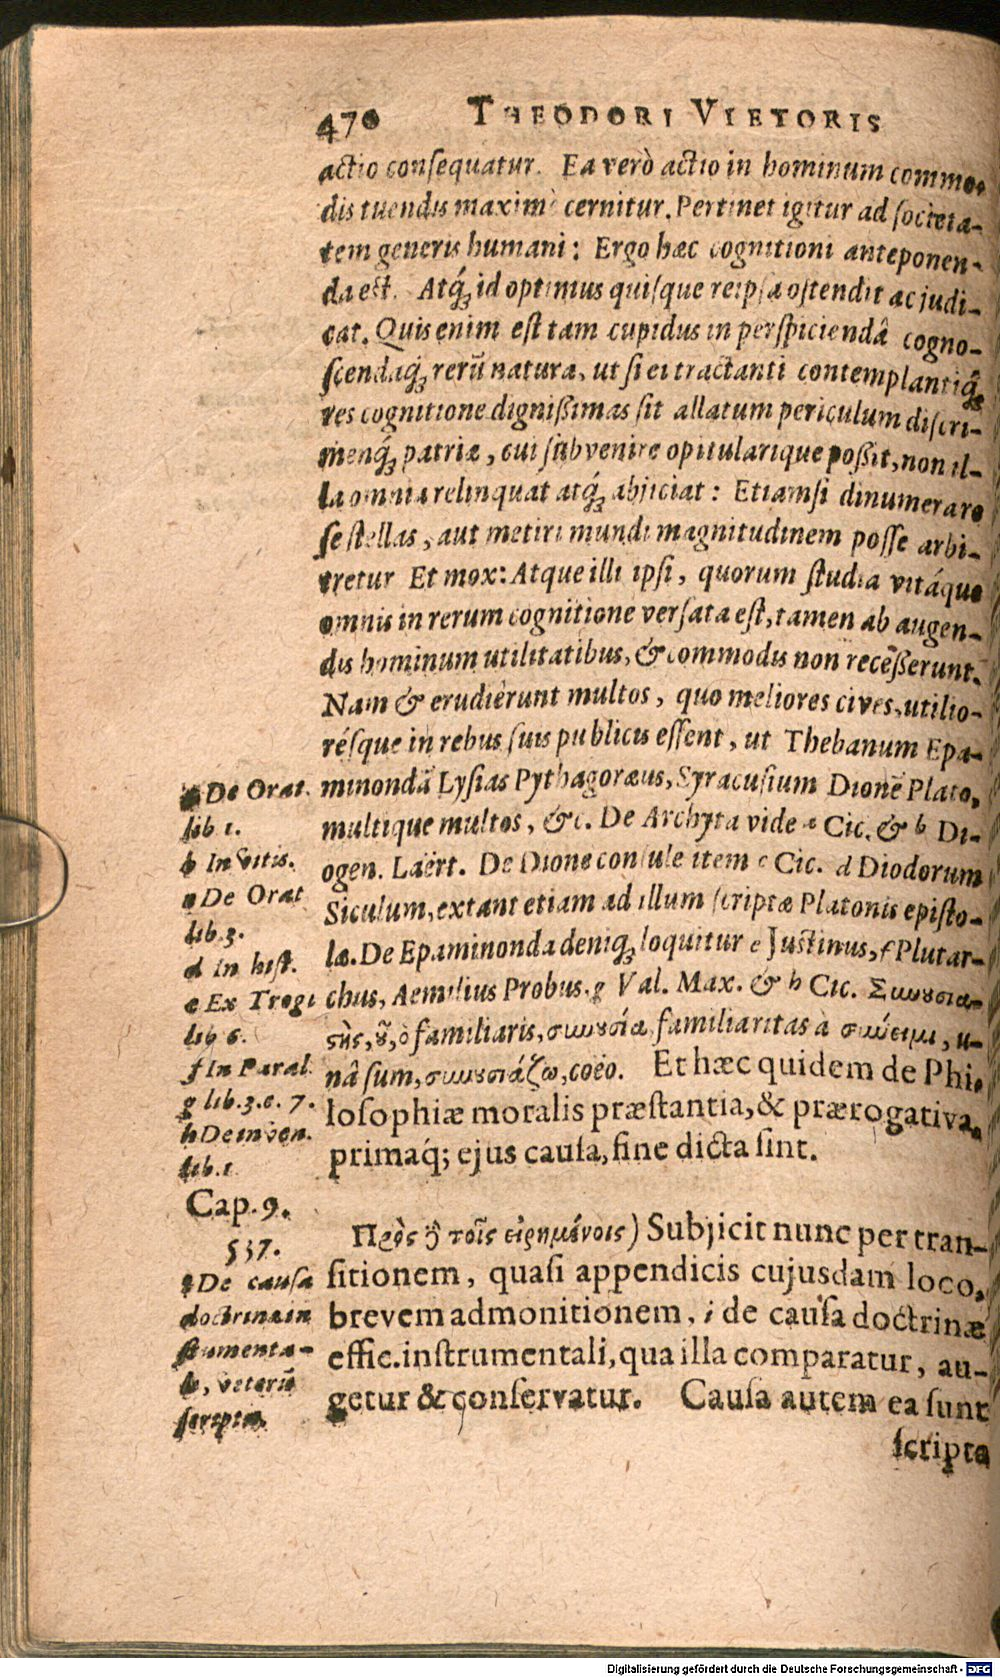 470 THEODORI VIETORIS
actio consequatur. Ea verò actio in hominum commo-
dis tuendis maximè cernitur. Pertinet igitur ad societa-
tem generis humani: Ergo hæc cognitioni anteponen-
da est. Atq́; id optimus quisque reipsa ostendit ac judi-
cat. Quis enim est tam cupidus in perspiciendâ cogno-
scendaq́; rerū natura, ut si ei tractanti contemplantiq́;
res cognitione dignißimas sit allatum periculum discri-
menq́; patriæ, cui subvenire opitularique poßit, non il-
la omnia relinquat atq́; abjiciat: Etiamsi dinumerare
se stellas, aut metiri mundi magnitudinem posse arbi-
tretur Et mox: Atque illi ipsi, quorum studia vitáque
omnis in rerum cognitione versata est, tamen ab augen-
dis hominum utilitatibus, & commodis non receßerunt.
Nam & erudierunt multos, quo meliores cives, utilio-
résque in rebus suis publicis essent, ut Thebanum Epa-
minondā Lysias Pythagoræus, Syracusium Dionē Plato,
multique multos, &c. De Archyta vide a Cic. & b Di-
ogen. Laërt. De Dione consule item c Cic. d Diodorum
Siculum, extant etiam ad illum scriptæ Platonis episto-
læ. De Epaminonda deniq́; loquitur e Justinus, f Plutar-
chus, Aemilius Probus. g Val. Max. & h Cic. Συνουσια-
ςὴς, ȣ͂, ὁ familiaris, συνουσία familiaritas à σιώειμι, u-
nâ sum, συνουσιάζω, coëo. Et hæc quidem de Phi-
losophiæ moralis præstantia, & prærogativa,
primaq́; ejus causa, fine dicta sint.
Πρὸς ȣ͂ τοῖς εἰρημένοις) Subjicit nunc per tran-
sitionem, quasi appendicis cujusdam loco,
brevem admonitionem, i de causa doctrinæ
effic. instrumentali, qua illa comparatur, au-
getur & conservatur. Causa autem ea sunt
scripta
a De Orat.
lib 1.
b In vitis.
c De Orat
lib. 3.
d in hist.
e Ex Trogi
lib 6.
f In Paral.
g lib. 3. c. 7.
h De inven.
lib. 1
Cap. 9.
§37.
i De causa
doctrinæ in
strumenta-
le, veterū
scripta.
Digitalisierung gefördert durch die Deutsche Forschungsgemeinschaft - DFG